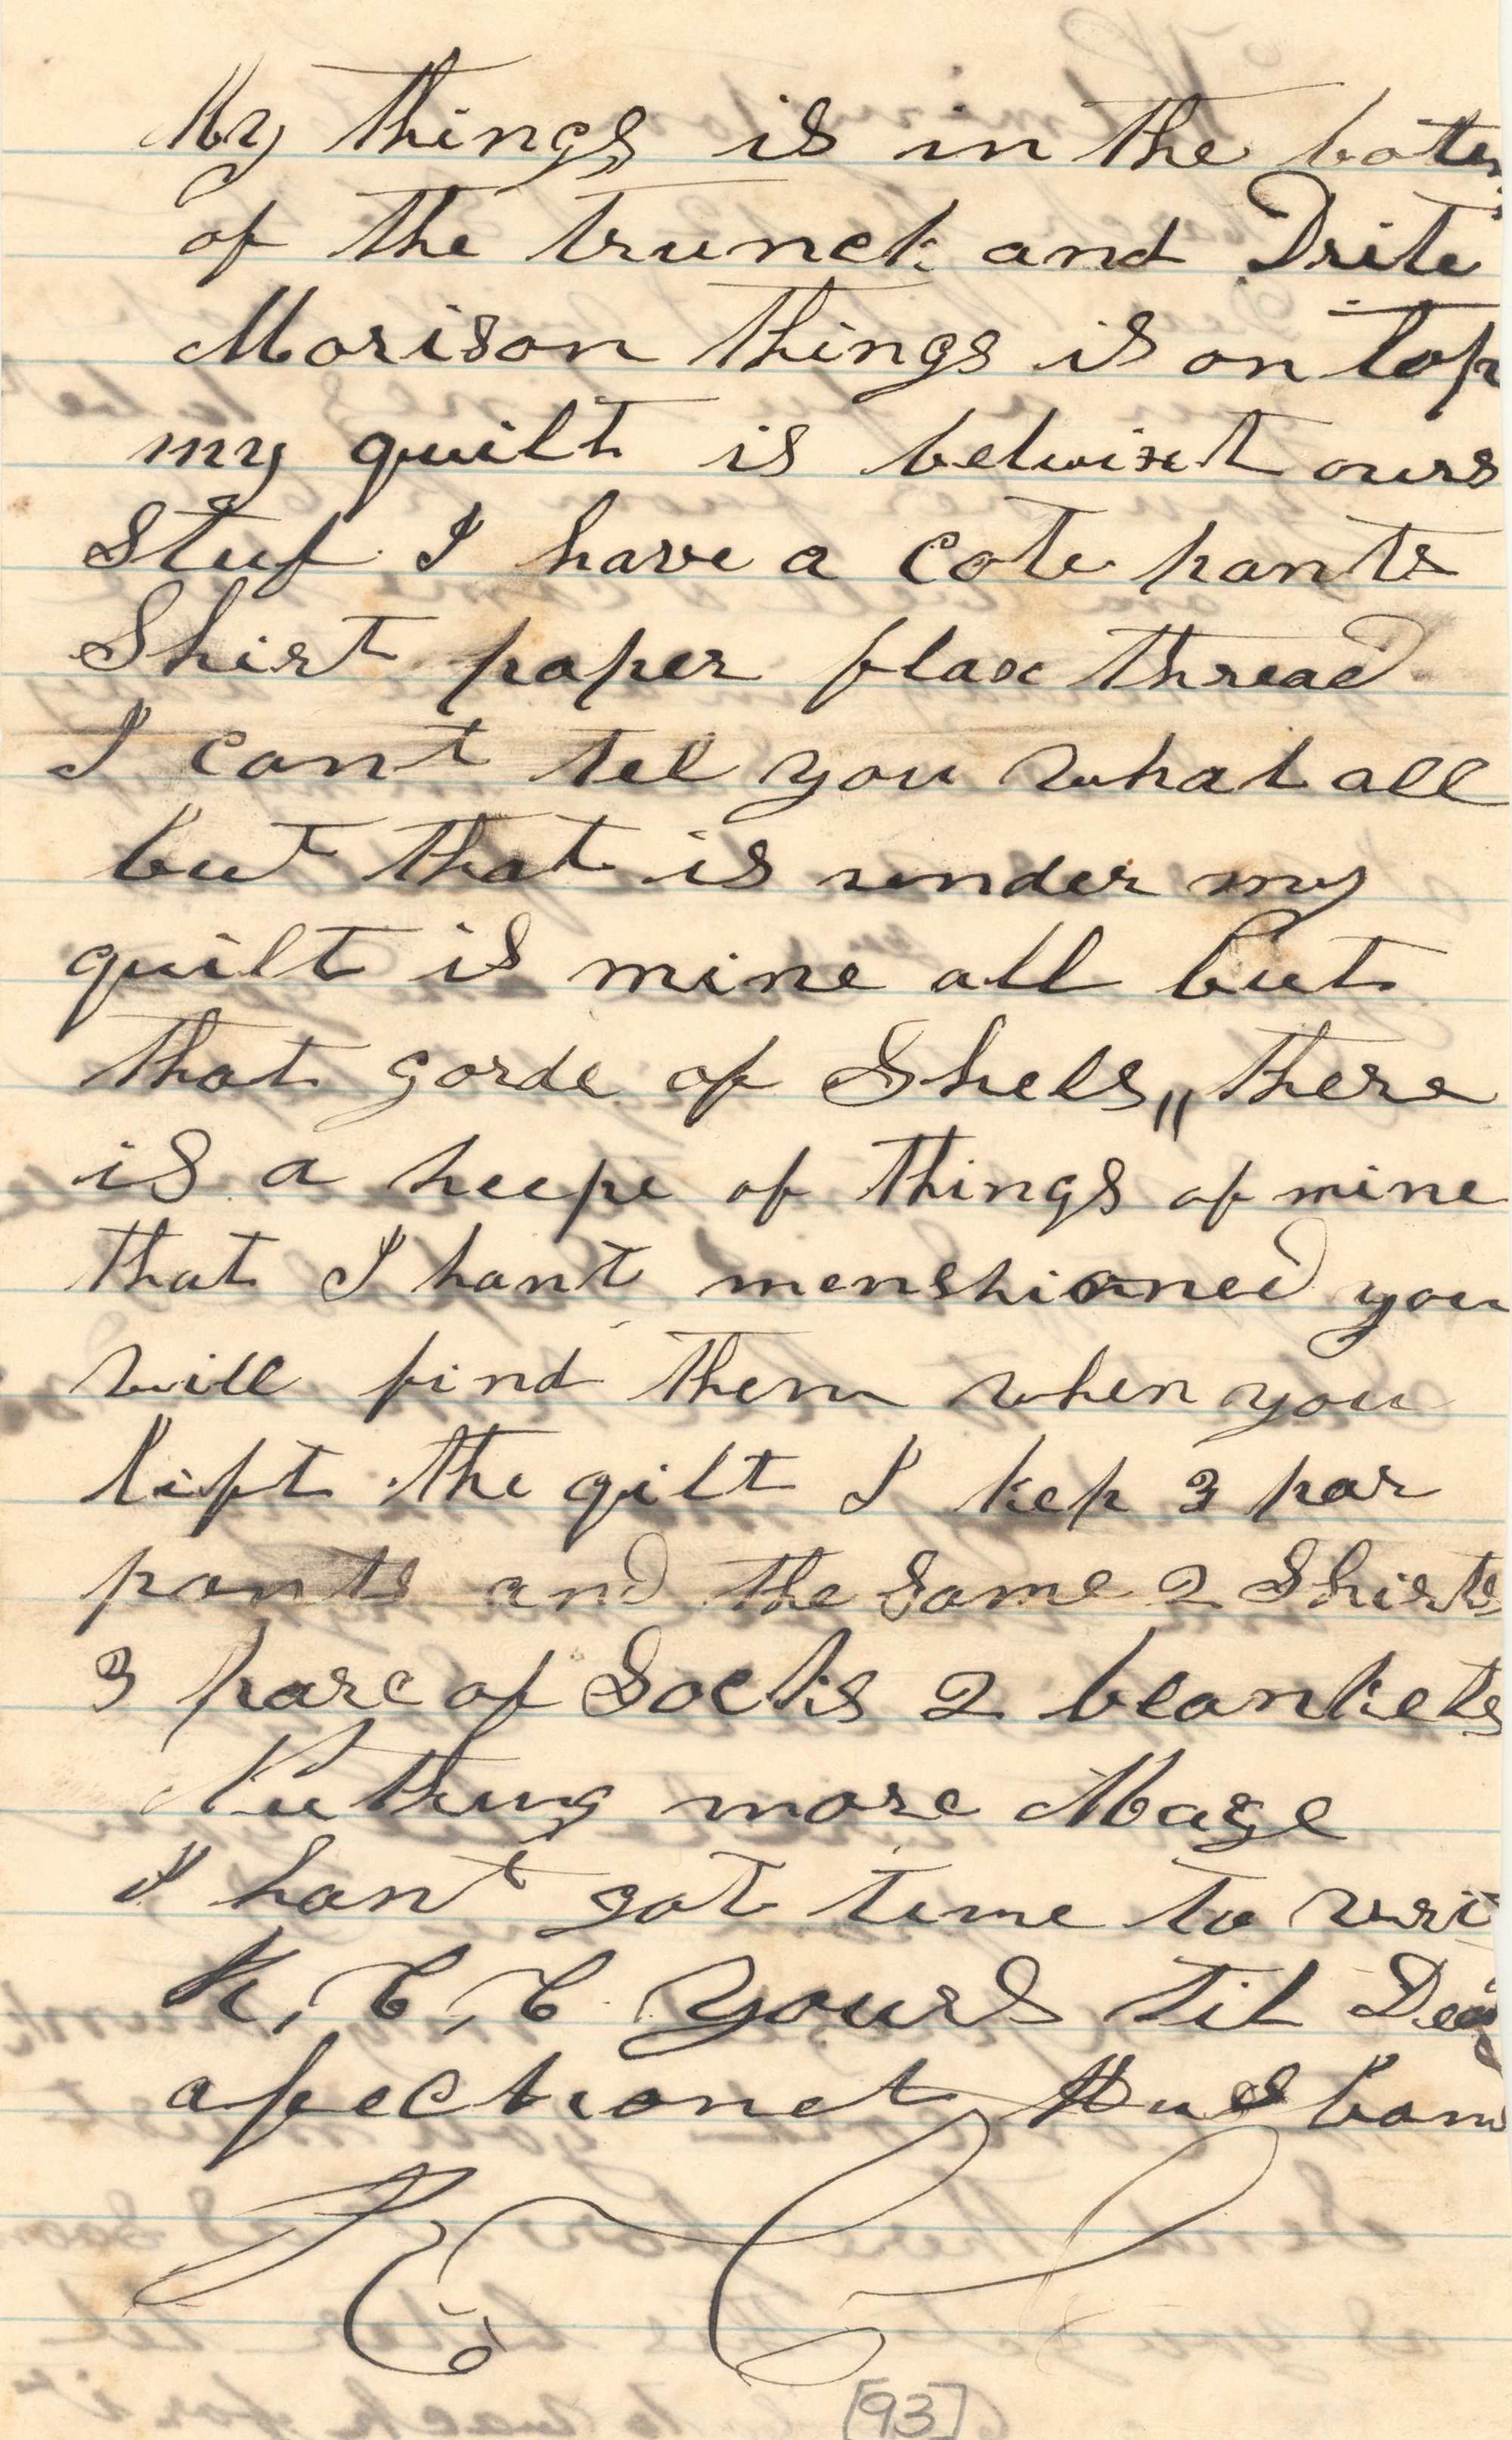 My things is in the botem
of the trunck and Drite
Morison things is on top
my quilt is betwixt ours
Stuf I have a cote pants
Shirt paper flax thread
I cant tel you what all
but that is under my
quilt is mine all but
that gorde of Shels,, there
is a heepe of things of mine
that I hant menshioned you
will find them when you
lift the qilt I kep 3 par
pants and the Same 2 Shirts
3 pare of Socks 2 blankets
Nuthing more Mage
I hant got time to wri
K, C, C. yours til Dea
afectionet Husban
[93]